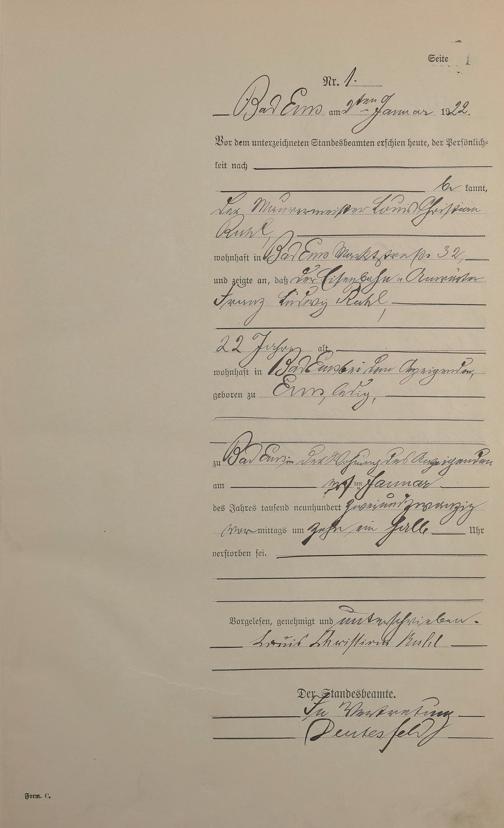 Seite 1
Nr. 1.
Bad Ems am 2ten Januar 1922.
Vor dem unterzeichneten Standesbeamten erschien heute, der Persönlich-
keit nach
bekannt,
der Maurermeister Louis Christian
Ruhl,
wohnhaft in Bad Ems Marktstraße 32,
und zeigte an, daß der Eisenbahn-Anwärter
Franz Ludwig Ruhl,
22 Jahre alt,
wohnhaft in Bad Ems bei dem Anzeigenden,
geboren zu Ems, ledig,
zu Bad Ems in der Wohnung des Anzeigenden
am Januar
des Jahres tausend neunhundert zweiundzwanzig
vormittags um zehn ein halb Uhr
verstorben sei.
Vorgelesen, genehmigt und unterschrieben.
Louis Christian Ruhl
Der Standesbeamte.
In Vertretung
Form. C.